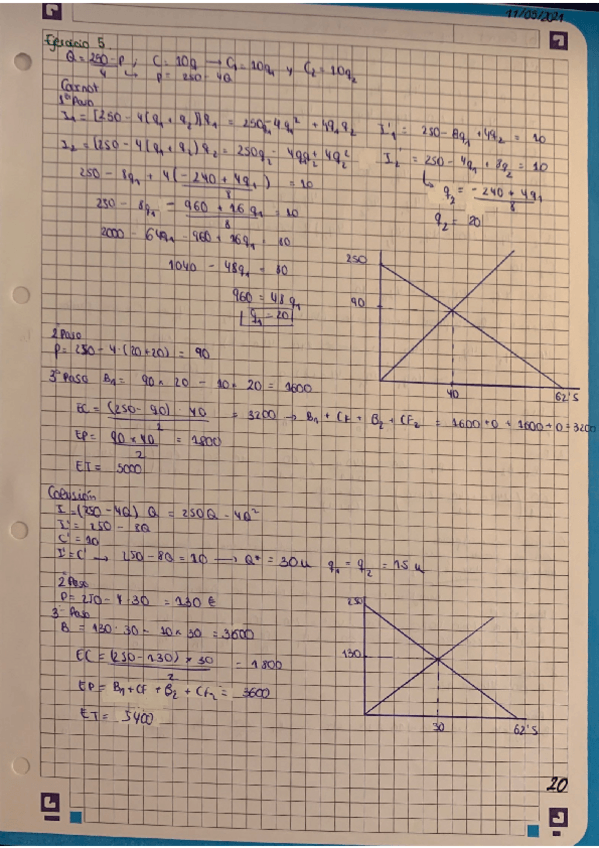 11/03/2021
Ejercicio 5
Q = 250-P / 4 ; C = 10q → C₁ = 10q₁ y C₂ = 10q₂
↳ P = 250 - 4Q
1º Paso
I₁ = [250 - 4(q₁ + q₂)]q₁ = 250q₁ - 4q₁² + 4q₁q₂ I'₁ = 250 - 8q₁ + 4q₂ = 10
I₂ = (250 - 4(q₁ + q₂)q₂ = 250q₂ - 4q₁q₂ + 4q₂² I₂ = 250 - 4q₁ + 8q₂ = 10
250 - 8q₁ + 4(-240 + 4q₁ / 8) = 10
↳ q₂ = -240 + 4q₁ / 8
250 - 8q₁ - 960 + 16q₁ / 8 = 10
q₂ = 20
2000 - 64q₁ - 960 + 16q₁ = 80
1040 - 48q₁ = 80
960 = 48q₁
q₁ = 20
250
90
40
62'5
2º Paso
P = 250 - 4·(20+20) = 90
3º Paso B₁ = 90 × 20 - 10 × 20 = 1600
EC = (250 - 90) · 40 / 2 = 3200 → B₁ + CF + B₂ + CF₂ = 1600 + 0 + 1600 + 0 = 3200
EP = 90 × 40 / 2 = 1800
ET = 5000
Colusión
I = (250 - 4Q) Q = 250Q - 4Q²
I' = 250 - 8Q
C' = 10
I' = C' → 250 - 8Q = 10 → Q* = 30u q₁ = q₂ = 15u
2º Paso
P = 250 - 4·30 = 130 €
3º Paso
B = 130·30 - 10×30 = 3600
EC = (250 - 130) × 30 / 2 = 1800
EP = B₁ + CF + B₂ + CF₂ = 3600
ET = 5400
250
130
30
62'5
20